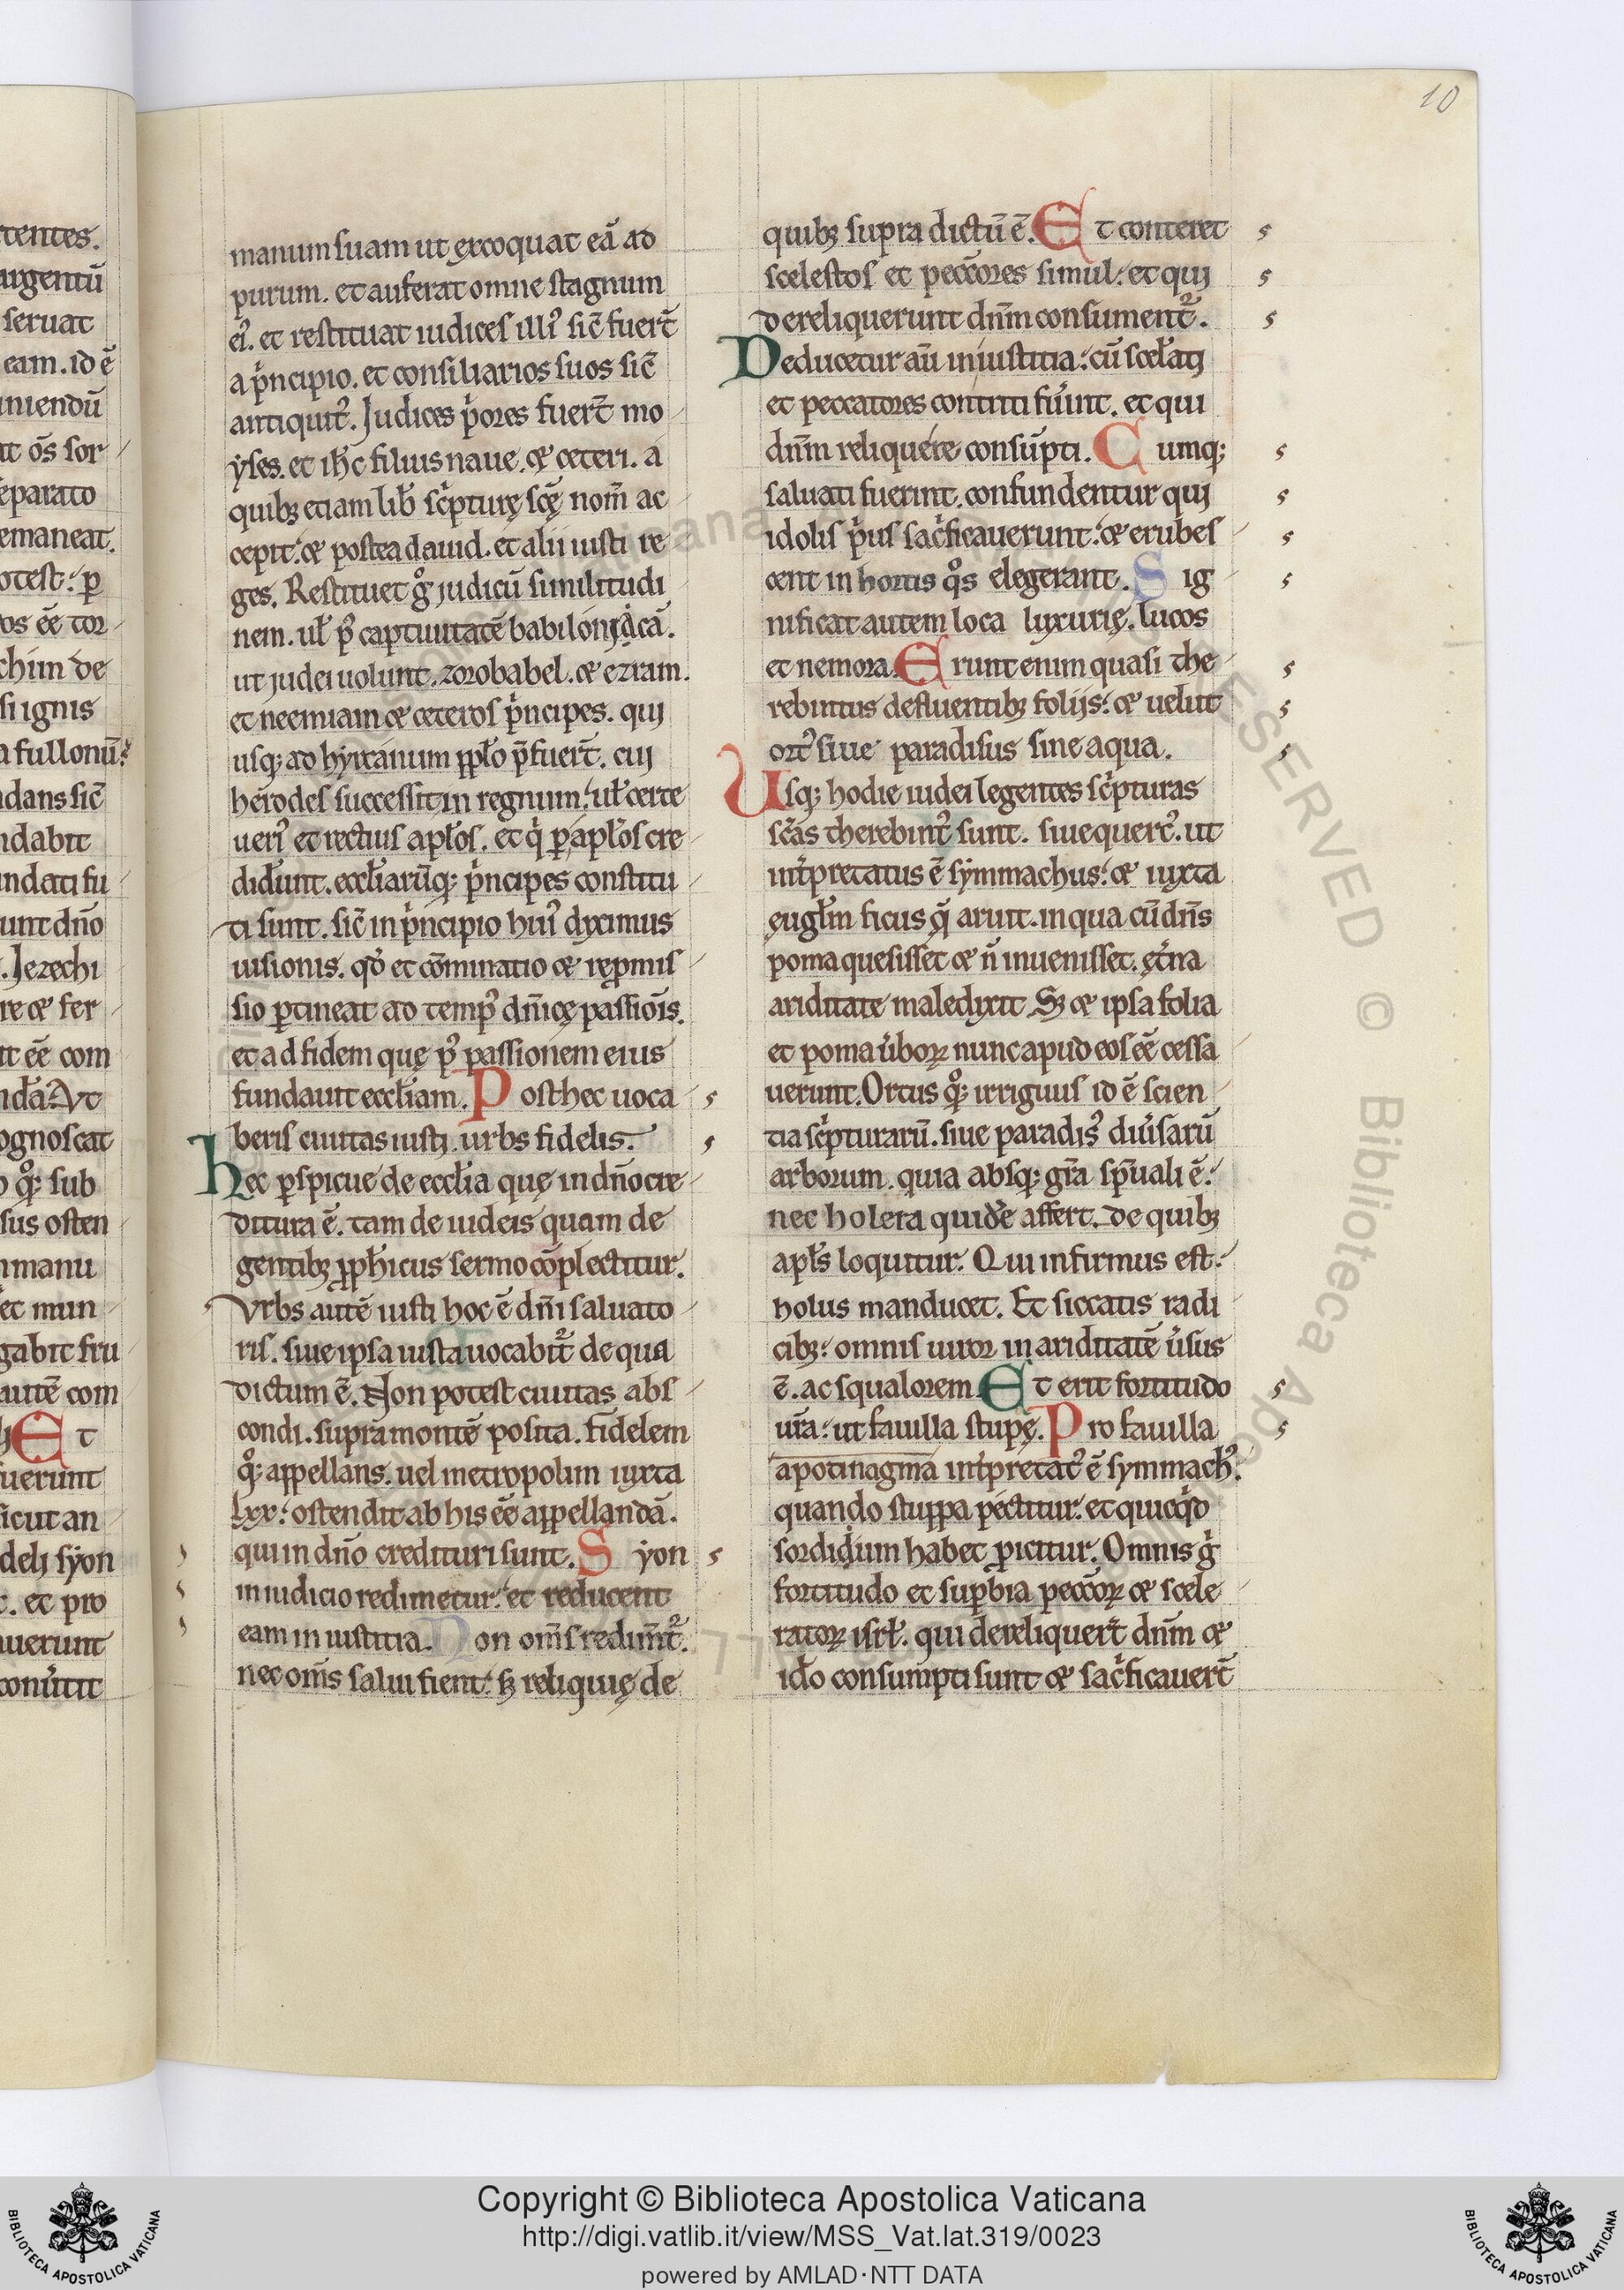 10
tentes.
argentū
seruat
eam. id ē
iniendū
it os̄ sor
eparato
emaneat.
otest: ꝑ
os eē tor
chim de
si ignis
a fullonū:
dans sic̄
ndabit
ndati fu
unt dn̄o
. Jezechi
re & fer
it eē com
nda: Vt
ognoscat
qͦꝫ sub
sus osten
manu
ec mun
gabit fru
autē com
Et
uerunt
icut an
delis syon
. et pro
auerunt
conũtit
manum suam ut excoquat eā ad
purum. et auferat omne stagnum
ei᾽. et restituat iudices illi᾽ sic̄ fuer̄t
a pͥncipio. et consiliarios suos sic̄
antiquit᾽. Judices pͥores fuer̄t mo
yses. et ih̄c filius naue. & ceteri. a
quibꝫ etiam lib̄ scͥpturę scę̄ nom̄ ac
cepit: & postea dauid. et alii iusti re
ges. Restituet gͦ judiciū similitudi
nem. ul̄ p᾽ captiuitatē babiloniacā.
ut judei uolunt. zorobabel. & ezram.
et neemiam & ceteros pͥncipes. qui
usqꝫ ad hyrcanum ppl̄o p̄fuer̄t. cui
herodes successit in regnum: ul̄ certe
ueri᾽ et rectius apl̄os. et qͥ ꝑ apl̄os cre
did̄unt. eccl̄iarūqꝫ pͥncipes constitu
ti sunt. sic̄ in pͥncipio hui᾽ diximus
uisionis. qd̄ et cōminatio & reꝓmis
sio ꝑtineat ad temp᾽ dn̄icę passiois̄.
et ad fidem quę p᾽ passionem eius
fundauit eccl̄iam. Post hec uoca
beris ciuitas iusti. urbs fidelis.
Hec ꝑspicue de eccl̄ia quę in dn̄o cre
ditura ē. tam de iudeis quam de
gentibꝫ ꝓph̄icus sermo cōplectitur.
Vrbs autē iusti hoc ē dn̄i saluato
ris. siue ipsa iusta uocabit᷑ de qua
dictum ē. Non potest ciuitas abs
condi. supra montē posita. Fidelem
qͦꝫ appellans. uel metropolim iuxta
lxx: ostendit ab his eē appellandā.
qui in dn̄o credituri sunt. Syon
in iudicio redimetur: et reducent
eam in iustitia. Non om̄s redim̄t᷑.
nec om̄s salui fient: sꝫ reliquię de
quibꝫ supra dictū ē. Et conteret
scelestos et pecc̄ores simul: et qui
dereliquerunt dn̄m consument᷑.
Deducetur aū injustitia: cū scel̄ati
et peccatores contriti fūint. et qui
dn̄m reliquere consūpti. Cumqꝫ
saluati fuerint. confundentur qui
idolis pͥus sacͥficauerunt: & erubes
cent in hortis qͦs elegerant. Sig
nificat autem loca luxurię. lucos
et nemora. Erunt enim quasi the
rebintus defluentibꝫ folijs: & uelut
ort᾽ siue paradisus sine aqua.
Usqꝫ hodie iudei legentes scͥpturas
sc̄as therebint᾽ sunt. siue querc᾽. ut
int̄pretatus ē symmachus: & iuxta
eugl̄m ficus q̄ aruit. in qua cū dn̄s
poma quesisset & n̄ inuenisset. ęt̄na
ariditate maledixit. Sꝫ & ipsa folia
et poma ūboꝝ nunc apud eos eē cessa
uerunt. Ortus qͦꝫ irriguus id ē scien
tia scͥpturarū. siue paradis᾽ diūsarū
arborum. quia absqꝫ gr̄a sp̄uali ē:
nec holera quidē affert. de quibꝫ
apl̄s loquitur. Qui infirmus est:
holus manducet. Et siccatis radi
cibꝫ: omnis uiror in ariditatē ūsus
ē. ac squalorem. Et erit fortitudo
ur̄a: ut fauilla stupę. Pro fauilla
apotinagma int̄pretat᾽ ē symmach᾽.
quando stuppa pectitur: et quicqͥd
sordidum habet ꝓicitur. Omnis gͥ
fortitudo et suꝑbia pecc̄oꝝ & scele
ratoꝝ isrl̄. qui dereliquer̄t dn̄m &
id̄o consumpti sunt & sacͥficauer̄t
Copyright © Biblioteca Apostolica Vaticana
http://digi.vatlib.it/view/MSS_Vat.lat.319/0023
powered by AMLAD·NTT DATA
BIBLIOTECA APOSTOLICA VATICANA
BIBLIOTECA APOSTOLICA VATICANA